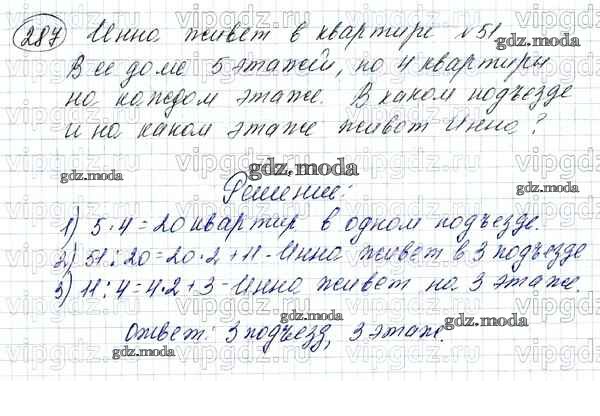 287 Инна живет в квартире №51.
В ее доме 5 этажей, по 4 квартиры
на каждом этаже. В каком подъезде
и на каком этаже живет Инна?
Решение:
1) 5·4=20 квартир в одном подъезде.
2) 51:20=20·2+11-Инна живет в 3 подъезде
3) 11:4=4·2+3-Инна живет на 3 этаже.
Ответ: 3 подъезд, 3 этаж.